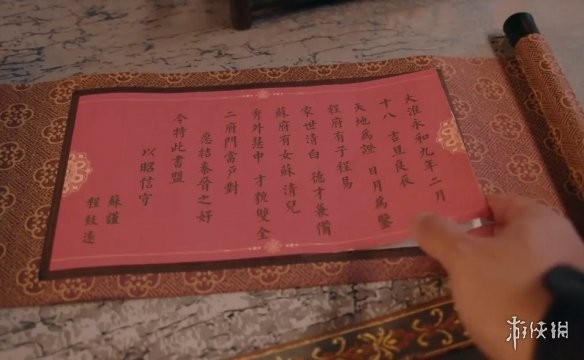 大淮永和九年二月
十八 吉旦良辰
天地為證 日月為鑒
程府有子程易
家世清白 德才兼備
蘇府有女蘇清兒
秀外慧中 才貌雙全
二府門當戶對
愿結秦晉之好
今特此書盟
以昭信守
蘇謹
程致遠
游侠網